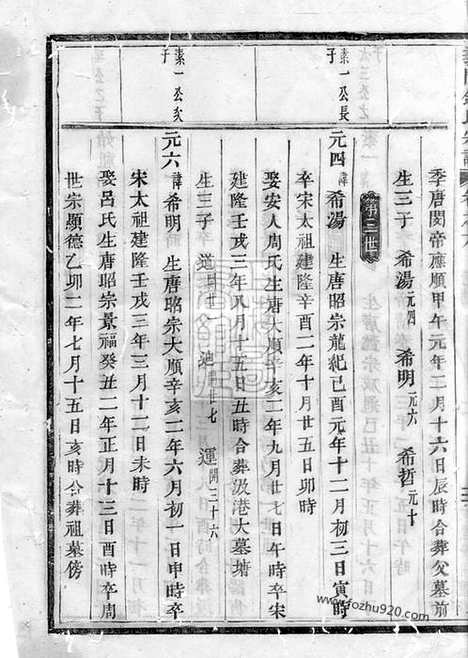 季唐閔帝應順甲午元年二月十六日辰時合葬父墓前
生三子 希湯元四 希明元六 希哲元十
第三世
素一公長子
元四 諱希湯 生唐昭宗龍紀己酉元年十二月初三日寅時
卒宋太祖建隆辛酉二年十月廿五日卯時
娶安人周氏生唐大順辛亥二年九月廿七日午時卒宋
建隆壬戌三年八月十五日丑時合葬汲港大墓塘
生三子 運開三十六
素一公次子
元六 諱希明 生唐昭宗大順辛亥二年六月初一日申時卒
宋太祖建隆壬戌三年三月十二日未時
娶呂氏生唐昭宗景福癸丑二年正月十三日酉時卒周
世宗顯德乙卯二年七月十五日亥時合葬祖墓傍
www.fozhu920.com